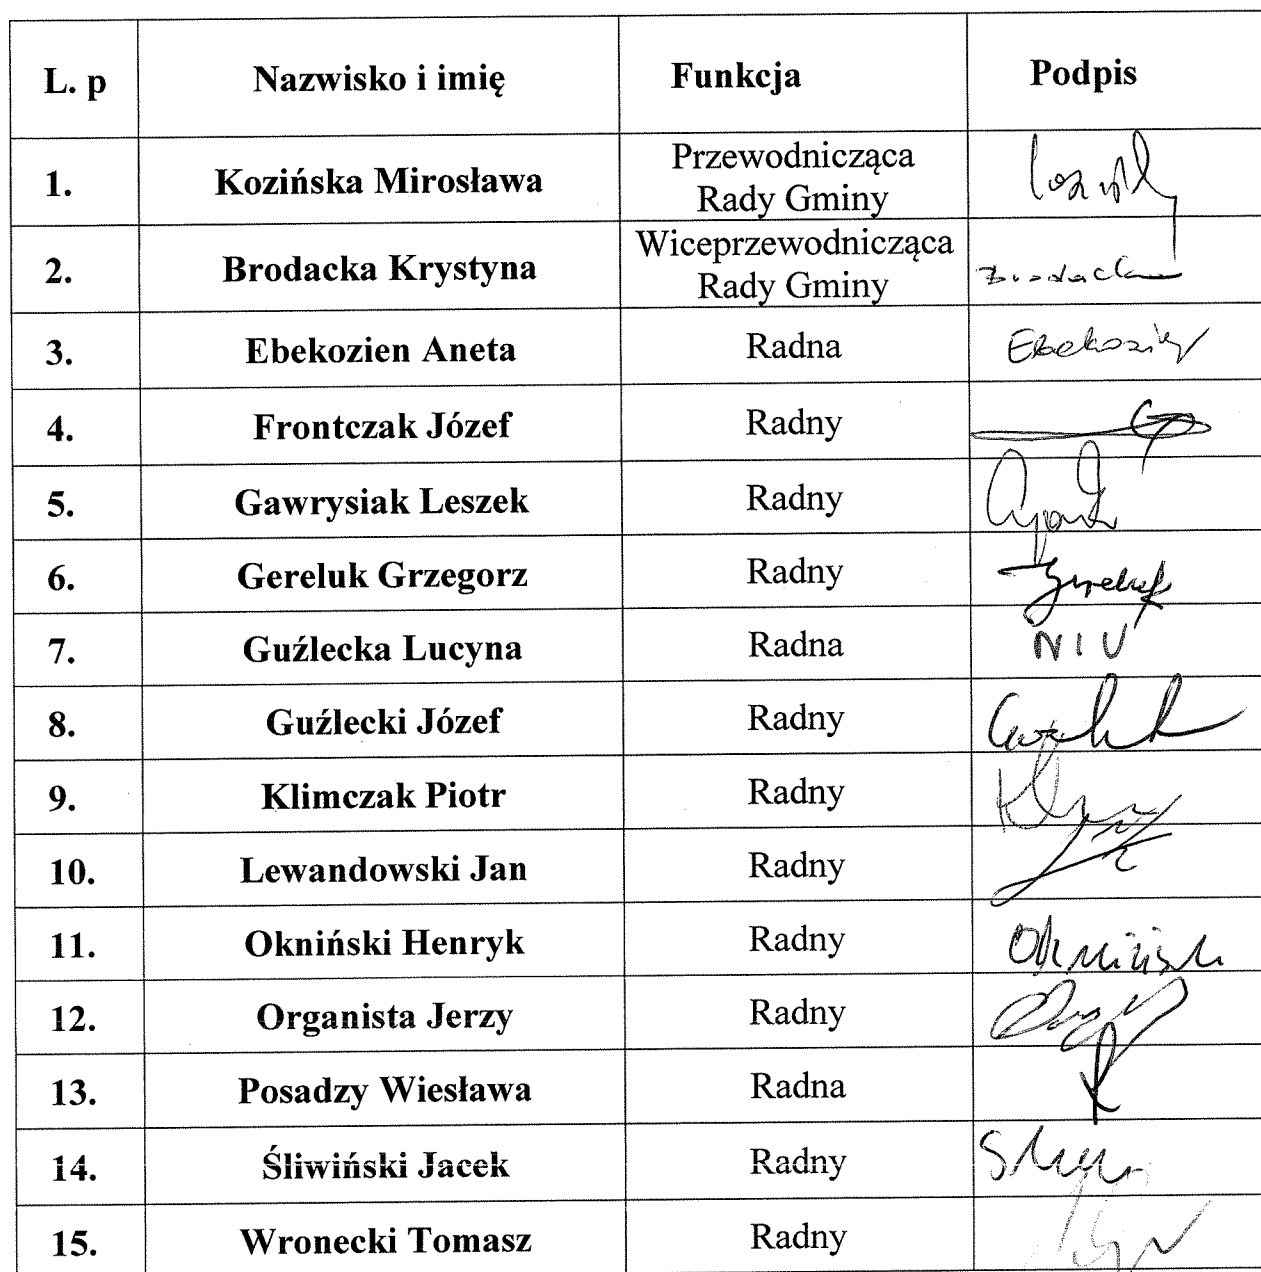 L. p Nazwisko i imię Funkcja Podpis
1. Kozińska Mirosława Przewodnicząca
Rady Gminy
2. Brodacka Krystyna Wiceprzewodnicząca
Rady Gminy
3. Ebekozien Aneta Radna Ebekozien
4. Frontczak Józef Radny
5. Gawrysiak Leszek Radny
6. Gereluk Grzegorz Radny
7. Guźlecka Lucyna Radna NIU
8. Guźlecki Józef Radny
9. Klimczak Piotr Radny
10. Lewandowski Jan Radny
11. Okniński Henryk Radny Okniński
12. Organista Jerzy Radny
13. Posadzy Wiesława Radna
14. Śliwiński Jacek Radny
15. Wronecki Tomasz Radny